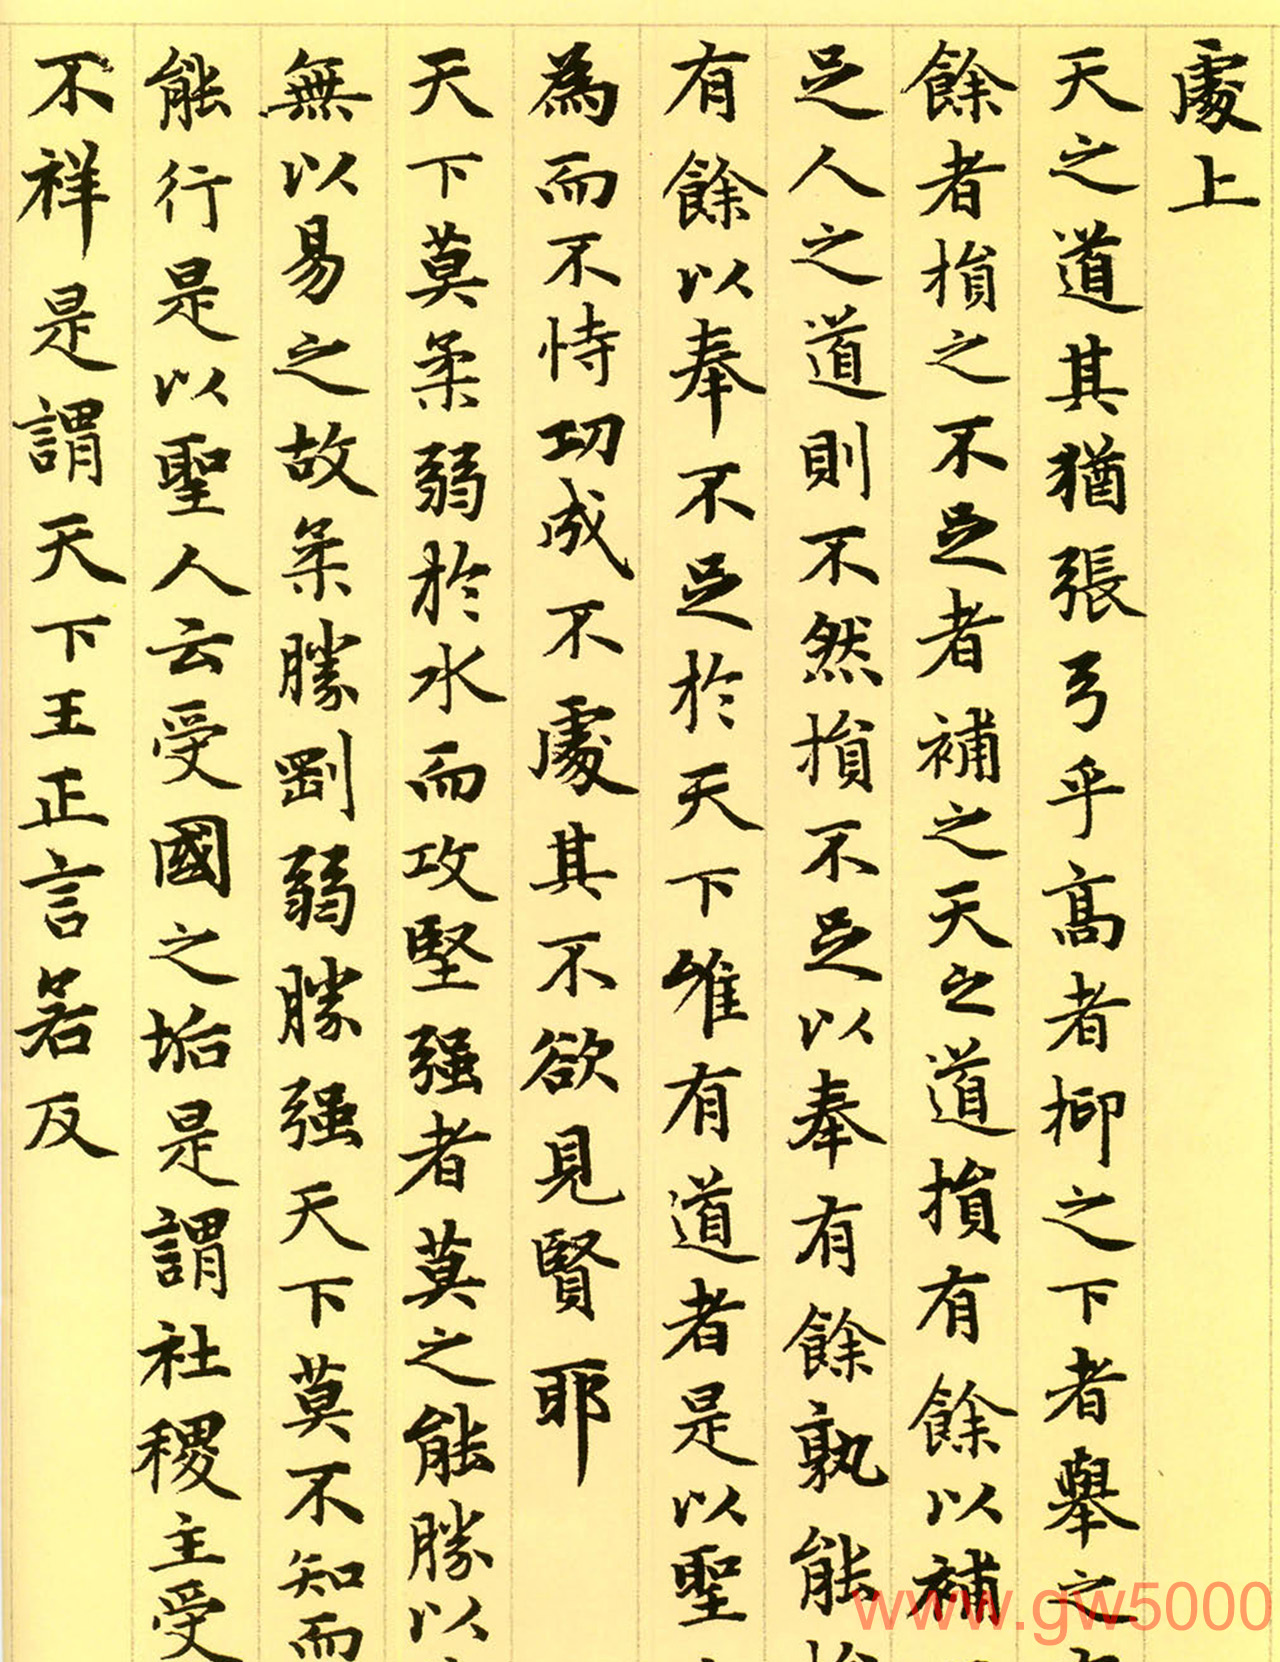 處上
天之道其猶張弓乎高者抑之下者舉之
餘者損之不足者補之天之道損有餘以補
足人之道則不然損不足以奉有餘孰能
有餘以奉不足於天下唯有道者是以聖
為而不恃功成不處其不欲見賢耶
天下莫柔弱於水而攻堅强者莫之能勝以
無以易之故柔勝剛弱勝强天下莫不知而
能行是以聖人云受國之垢是謂社稷主受
不祥是謂天下王正言若反
www.gw5000